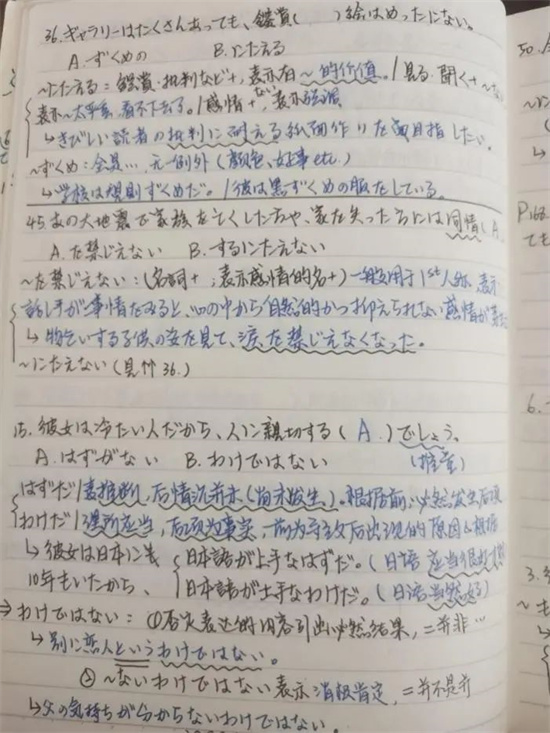 36. ギャラリーはたくさんあっても、鑑賞(　　)絵はめったにない。
A. ずくめの　　B. にたえる
～にたえる：鑑賞・批判など+，表示有～的价值。/ 見る・聞く+～ない
表示～太严重，看不下去了。/ 感情+ない，表示强调
↳ きびしい読者の批判に耐える紙面作りを目指したい。
～ずくめ：全是…，无一例外（颜色、好事etc.）
↳ 学校は規則ずくめだ。/ 彼は黒ずくめの服をしている。
45. あの大地震で家族をなくした方や、家を失った方には同情(A.
A. を禁じえない　B. するにたえない
～を禁じえない：(名詞+；表示感情的名+) 一般用于1st人称，表示
話し手が事情をみると、心の中から自然的かつ抑えられない感情が
↳ 物乞いする子供の姿を見て、涙を禁じえなくなった。
～にたえない (見忤36.)
15. 彼女は冷たい人だから、人に親切する(A.)でしょう。
A. はずがない　B. わけではない　(推量)
はずだ / 表推断，后情况并未(尚未发生)。根据前，必然发生后项
わけだ / 理所应当，后项为事实，前为导致后出现的原因&根据
↳ 彼女は日本に
10年もいたから、
日本語が上手なはずだ。(日语应当很好
日本語が上手なわけだ。(日语当然好)
⇒ わけではない：①否定表达的内容引出必然结果，=并非…
↳ 別に恋人というわけではない。
② ～ないわけではない表示消极肯定，=并不是并
↳ 父の気持ちが分からないわけではない。